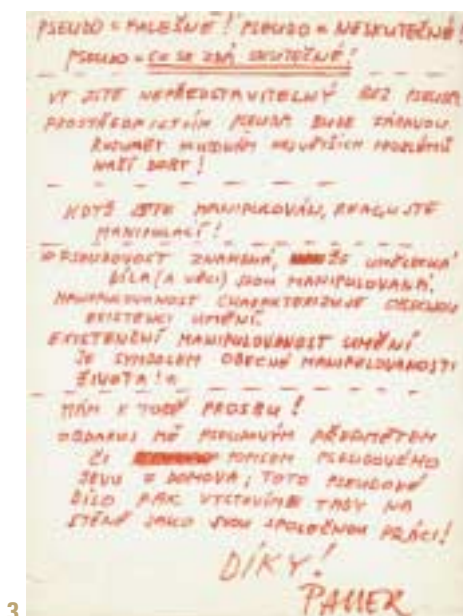 PSEUDO = FALEŠNÉ! PSEUDO = NESKUTEČNÉ!
PSEUDO = CO SE ZDÁ SKUTEČNÉ!
VY JSTE NEPŘEDSTAVITELNÝ BEZ PSEUDA
PROSTŘEDNICTVÍM PSEUDA BUDE ZÁBAVOU
ROZUMĚT NEJVĚTŠÍCH PROBLÉMŮ
NAŠÍ DOBY!
KDYŽ JSTE MANIPULOVÁN, REAGUJTE
MANIPULACÍ!
PSEUDOVOST ZNAMENÁ, ŽE UMĚLECKÁ
DÍLA (A VĚCI) JSOU MANIPULOVANÁ.
MANIPULOVANOST CHARAKTERIZUJE
EXISTENCI UMĚNÍ.
EXISTENČNÍ MANIPULOVANOST UMĚNÍ
JE SYMBOLEM OBECNÉ MANIPULOVANOSTI
ŽIVOTA!
MÁM K TOBĚ PROSBU!
OBDARUJ MĚ PSEUDOVÝM PŘEDMĚTEM
ČI POPISEM PSEUDOVÉHO
JEVU Z DOMOVA; TOTO PSEUDOVÉ
DÍLO PAK VYSTAVÍME TADY NA
STĚNĚ JAKO SVOU SPOLEČNOU PRÁCI!
DÍKY!
3